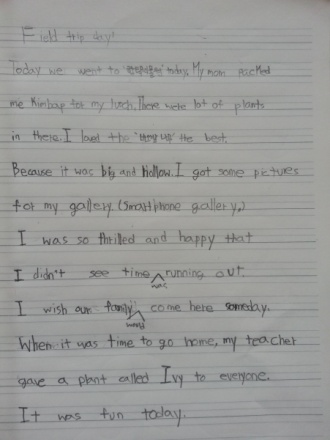 Field trip day!
Today we went to today. My mom packed
me Kimbap for my lunch. There were lot of plants
in there. I loved the the best.
Because it was big and hollow. I got some pictures
for my gallery (smartphone gallery,)
I was so thrilled and happy that
I didn't see time running out.
was
I wish our family come here someday.
would
When it was time to go home, my teacher
gave a plant called Ivy to everyone.
It was fun today.